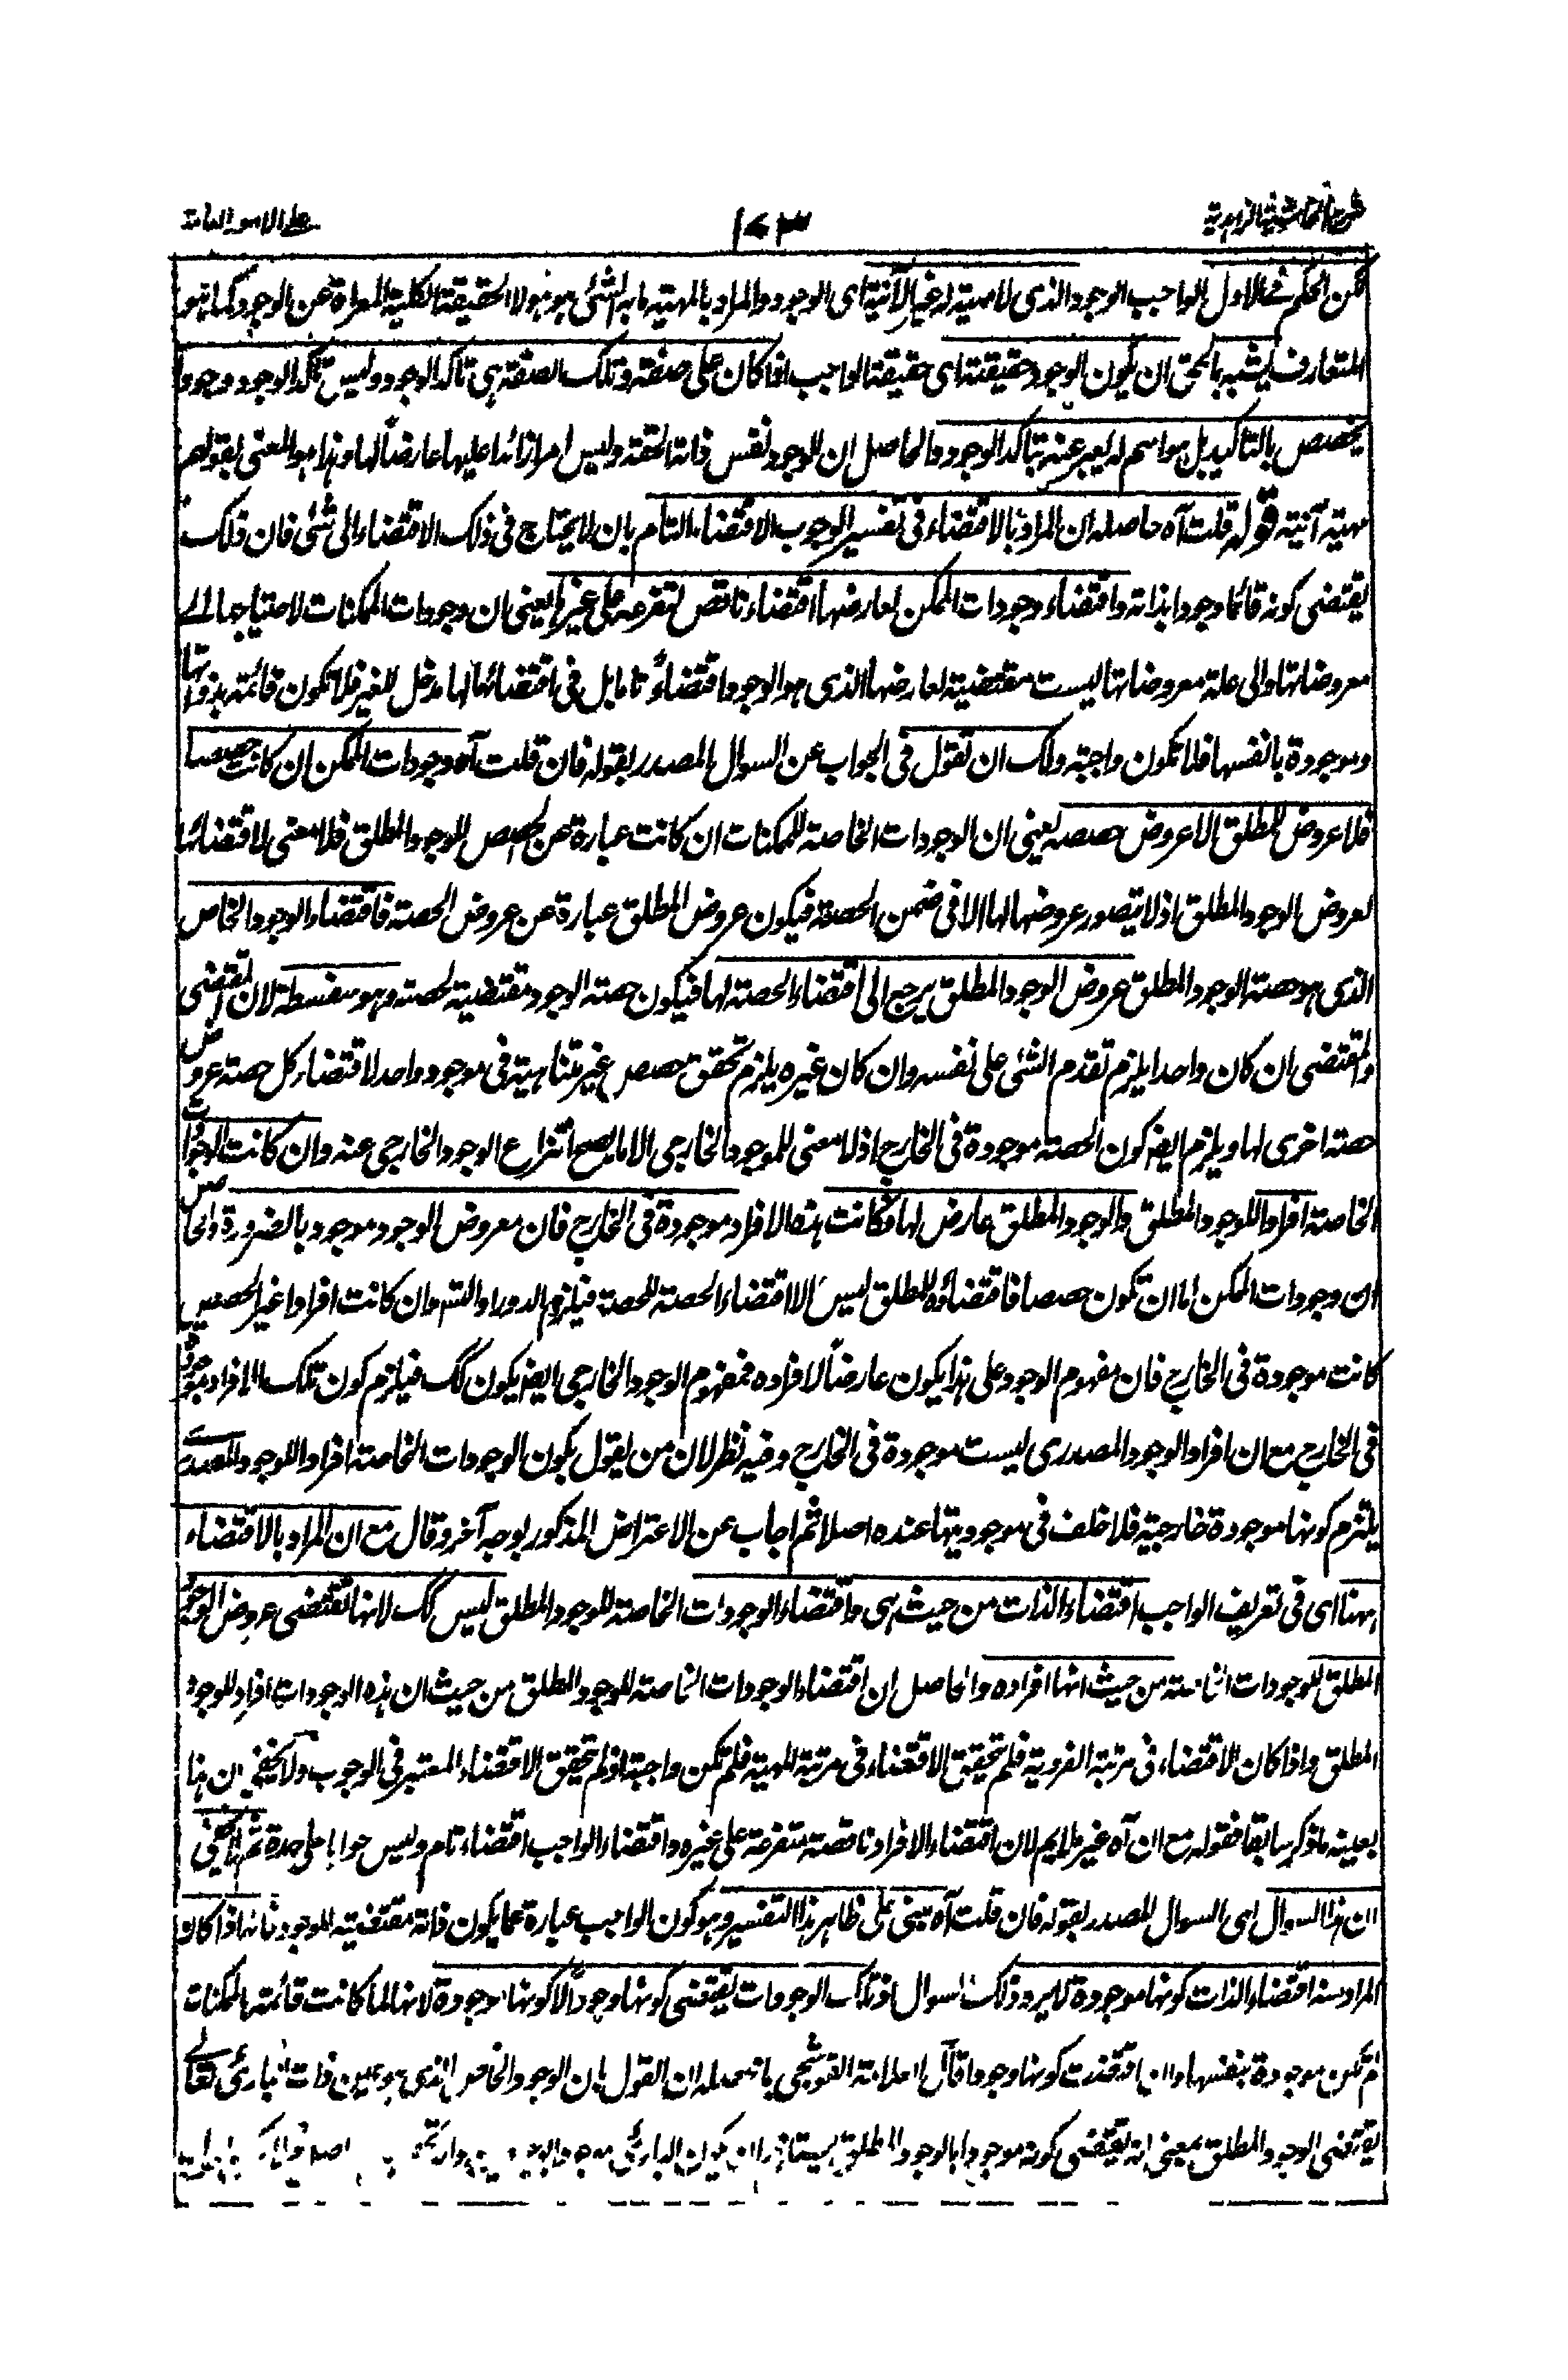 شرح الحاشية الزاهدية
١٧٣
على الامور العامة
فمن الحكم فى الاول الواجب الوجود الذى لا مهية له غير الآنية اى الوجود والمراد بالمهية ما به الشئى هو هو لا الحقيقة الكلية المعراة عن الوجود كما هو
المتعارف يشبه بالحق ان يكون الوجود حقيقته اى حقيقة الواجب اذا كان على صفة وتلك الصفة هى تاكد الوجود وليس تاكد الوجود وجودا
يخصص بالتاكيد بل هو اسم له يعبر عنه بتاكد الوجود والحاصل ان الوجود نفس ذاته الحقة وليس امرا زائدا عليها عارضاً لها وهذا هو المعنى بقولهم
مهيته آنيته قوله قلت آه حاصله ان المراد بالاقتضاء فى تفسير الوجوب الاقتضاء التام بان لا يحتاج فى ذلك الاقتضاء الى شئى فان ذلك
يقتضى كونه قائما وجودا بذاته واقتضاء وجودات الممكن لعارضها اقتضاء ناقص لتفرعه على غيرها يعنى ان وجودات الممكنات لاحتياجها الے
معروضاتها والى علة معروضاتها ليست مقتضية لعارضها الذى هو الوجود اقتضاءً تاما بل فى اقتضائها لها مدخل للغير فلا تكون قائمة بذواتها
وموجودة بانفسها فلا تكون واجبة ولك ان تقول فى الجواب عن السوال المصدر بقوله فان قلت آه وجودات الممكن ان كانت حصصا
فلا عروض للمطلق الا عروض حصصه يعنى ان الوجودات الخاصة للممكنات ان كانت عبارة عن الحصص للوجود المطلق فلا معنى لاقتضائها
لعروض الوجود المطلق اذ لا يتصور عروضها لها الا فى ضمن الحصة فيكون عروض المطلق عبارة عن عروض الحصة فاقتضاء الوجود الخاص
الذى هو حصة الوجود المطلق عروض الوجود المطلق يرجع الى اقتضاء الحصة لها فيكون حصة الوجود مقتضية لحصة وهو سفسطة لان المقتضى
والمقتضى ان كان واحدا يلزم تقدم الشئى على نفسه وان كان غيره يلزم تحقق حصص غير متناهية فى موجود واحد لاقتضاء كل حصة عروض
حصة اخرى لها ويلزم ايضا كون الحصة موجودة فى الخارج اذ لا معنى للموجود الخارجى الا ما يصح انتزاع الوجود الخارجى عنه وان كانت الوجودات
الخاصة افرادا للوجود المطلق والوجود المطلق عارض لها فكانت هذه الافراد موجودة فى الخارج فان معروض الوجود موجود بالضرورة والحاصل
ان وجودات الممكن اما ان تكون حصصا فاقتضاؤه للمطلق ليس الا اقتضاء الحصة للحصة فيلزم الدور او التس وان كانت افرادا غير الحصص
كانت موجودة فى الخارج فان مفهوم الوجود على هذا يكون عارضاً لافراده فمفهوم الوجود الخارجى ايضا يكون كك فيلزم كون تلك الافراد موجودة
فى الخارج مع ان افراد الوجود المصدرى ليست موجودة فى الخارج وفيه نظر لان من يقول بكون الوجودات الخاصة افرادا للوجود المصدرى
يلتزم كونها موجودة خارجية فلا خلف فى موجوديتها عنده اصلا ثم اجاب عن الاعتراض المذكور بوجه آخر وقال مع ان المراد بالاقتضاء
ههنا اى فى تعريف الواجب اقتضاء الذات من حيث هى واقتضاء الوجودات الخاصة للوجود المطلق ليس كك لانها تقتضى عروض الوجود
المطلق للوجودات الخاصة من حيث انها افراده والحاصل ان اقتضاء الوجودات الخاصة للوجود المطلق من حيث ان هذه الوجودات افراد للوجود
المطلق واذا كان الاقتضاء فى مرتبة الفردية فلم يتحقق الاقتضاء فى مرتبة المهية فلم تكن واجبة اذ لم يتحقق الاقتضاء المعتبر فى الوجوب ولا يخفى ان هذا
بعينه ما ذكر سابقا فقوله مع ان آه غير ملايم لان اقتضاء الافراد ناقصة متفرعة على غيره واقتضاء الواجب اقتضاء تام وليس جوابا على حدة ثم لا يخفى
ان هذا السوال اى السوال المصدر بقوله فان قلت آه مبنى على ظاهر هذا التفسير وهو كون الواجب عبارة عما يكون ذاته مقتضية للوجود فانه اذا كان
المراد منه اقتضاء الذات كونها موجودة لا يرد ذلك السوال اذ تلك الوجودات تقتضى كونها وجوداً لا كونها موجودة لانها لما كانت قائمة بالممكنات
لم تكن موجودة بنفسها وان اقتضت كونها وجودا قال العلامة القوشجى ما حاصله ان القول بان الوجود الخاص الذى هو عين ذات البارى تعالى
يقتضى الوجود المطلق بمعنى انه يقتضى كونه موجودا بالوجود المطلق يستلزم ان يكون البارى موجودا